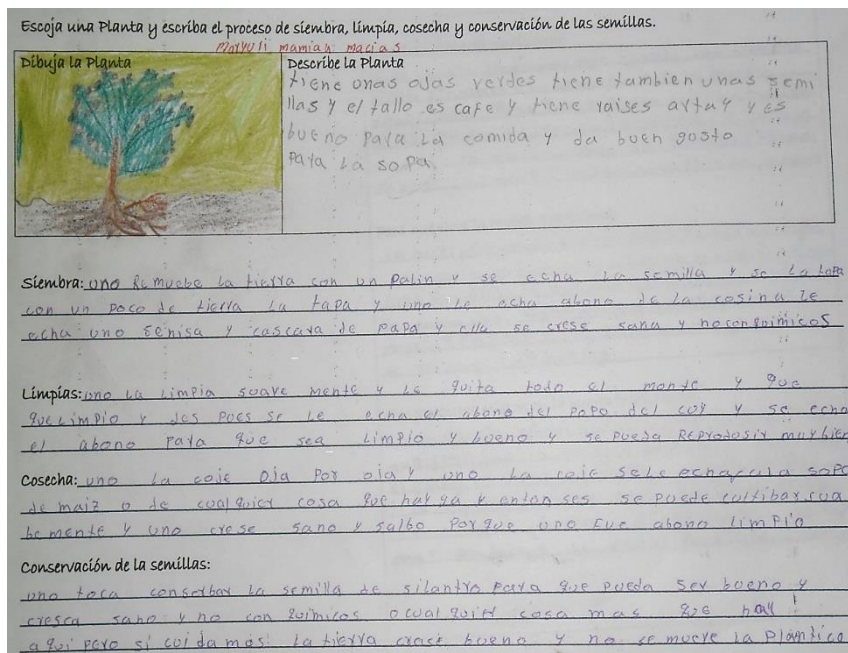 Escoja una Planta y escriba el proceso de siembra, limpia, cosecha y conservación de las semillas.
Maryuli mamian macias
Dibuja la Planta
Describe la Planta
tiene onas ojas verdes tiene tambien unas semi
llas y el tallo es cafe y tiene raises artas y es
bueno para la comida y da buen gosto
para la sopa
Siembra: uno Remuebe la tierra con un palin y se echa la semilla y se la tapa
con un poco de tierra la tapa y uno le echa abono de la cosina le
echa uno senisa y cascara de papa y ella se crese sana y no con quimicos
Limpias: uno la limpia suave mente y le quita todo el monte y que
quelimpio y des poes se le echa el abono del popo del coy y se echa
el abono para que sea limpio y bueno y se pueda Reprodosir muy bien
Cosecha: uno la coje oja por oja y uno la coje se le echa a la sopa
de maiz o de cualquier cosa que hayga y enton ses se puede cultibar sua
be mente y uno crese sano y salbo porque uno fue abono limpio
Conservación de la semillas:
uno toca conserbar la semilla de silantro para que pueda ser bueno y
cresca sano y no con quimicos o cual quier cosa mas que hay
aqui pero si cuidamos la tierra crece bueno y no se muere la plantica